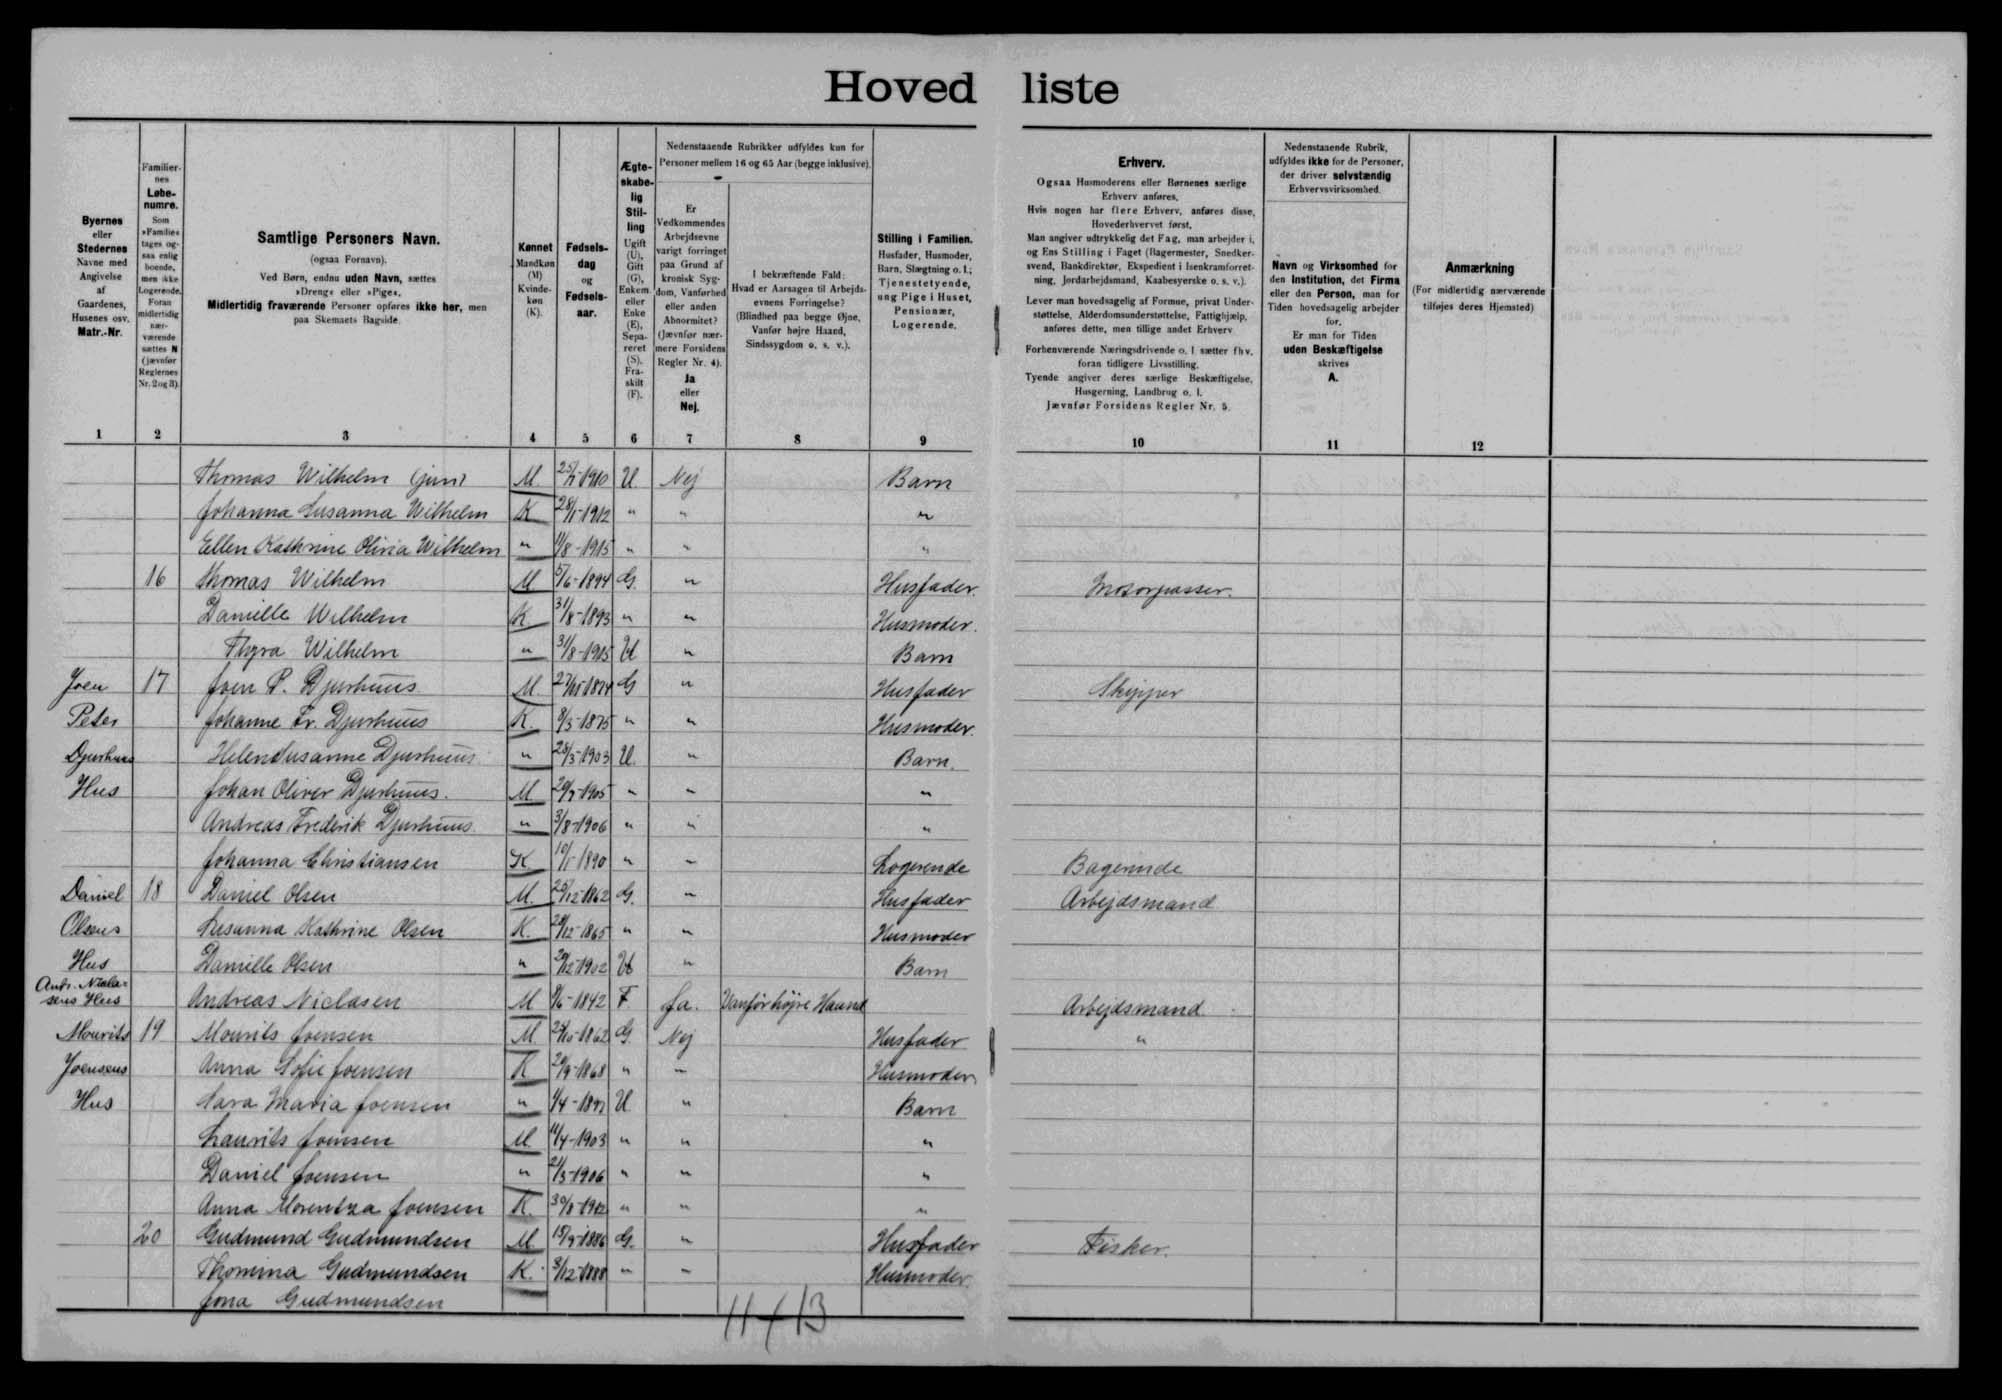 Hoved liste
Byernes
eller
Stedernes
Navne med
Angivelse
af
Gaardenes,
Husenes osv.
Matr.-Nr.
Familier-
nes
Løbe-
numre.
Som
»Familie«
tages og-
saa enlig
boende,
men ikke
Logerende.
Foran
midlertidig
nær-
værende
sættes N
(jævnfør
Reglernes
Nr. 2 og 3).
Samtlige Personers Navn.
(ogsaa Fornavn).
Ved Børn, endnu uden Navn, sættes
»Dreng« eller »Pige«.
Midlertidig fraværende Personer opføres ikke her, men
paa Skemaets Bagside.
Kønnet
Mandkøn
(M)
Kvinde-
køn
(K).
Fødsels-
dag
og
Fødsels-
aar.
Ægte-
skabe-
lig
Stil-
ling
Ugift
(U),
Gift
(G),
Enkem.
eller
Enke
(E),
Sepa-
reret
(S),
Fra-
skilt
(F).
Nedenstaaende Rubrikker udfyldes kun for
Personer mellem 16 og 65 Aar (begge inklusive).
Er
Vedkommendes
Arbejdsevne
varigt forringet
paa Grund af
kronisk Syg-
dom, Vanførhed
eller anden
Abnormitet?
(Jævnfør nær-
mere Forsidens
Regler Nr. 4).
Ja
eller
Nej.
I bekræftende Fald:
Hvad er Aarsagen til Arbejds-
evnens Forringelse?
(Blindhed paa begge Øjne,
Vanfør højre Haand,
Sindssygdom o. s. v.).
Stilling i Familien.
Husfader, Husmoder,
Barn, Slægtning o. l.;
Tjenestetyende,
ung Pige i Huset,
Pensionær,
Logerende.
Erhverv.
Ogsaa Husmoderens eller Børnenes særlige
Erhverv anføres.
Hvis nogen har flere Erhverv, anføres disse,
Hovederhvervet først.
Man angiver udtrykkelig det Fag, man arbejder i,
og Ens Stilling i Faget (Bagermester, Snedker-
svend, Bankdirektør, Ekspedient i Isenkramforret-
ning, Jordarbejdsmand, Kaabesyerske o. s. v.).
Lever man hovedsagelig af Formue, privat Under-
støttelse, Alderdomsunderstøttelse, Fattighjælp,
anføres dette, men tillige andet Erhverv
Forhenværende Næringsdrivende o. l. sætter fhv.
foran tidligere Livsstilling.
Tyende angiver deres særlige Beskæftigelse,
Husgerning, Landbrug o. l.
Jævnfør Forsidens Regler Nr. 5.
Nedenstaaende Rubrik,
udfyldes ikke for de Personer,
der driver selvstændig
Erhvervsvirksomhed.
Navn og Virksomhed for
den Institution, det Firma
eller den Person, man for
Tiden hovedsagelig arbejder
for.
Er man for Tiden
uden Beskæftigelse
skrives
A.
Anmærkning
(For midlertidig nærværende
tilføjes deres Hjemsted)
1 2 3 4 5 6 7 8 9 10 11 12
Thomas Wilhelm (jun) M. 25/7-1910 U. Nej Barn
Johanna Susanna Wilhelm K 28/1-1912 " " "
Ellen Kathrine Olivia Wilhelm " 11/8-1915 " " "
16 Thomas Wilhelm M. 5/6-1894 G. " Husfader. Motorpasser.
Danielle Wilhelm K 31/8-1893 " " Husmoder.
Thyra Wilhelm " 31/8-1915 U " Barn
Joen 17 Joen P. Djurhuus M. 27/5-1874 G " Husfader Skipper
Peter Johanne Fr. Djurhuus K. 9/3-1875 " " Husmoder.
Djurhuus Helen Susanne Djurhuus " 28/3-1903 U. " Barn.
Hus Johan Oliver Djurhuus. M 20/7-1905 " " "
Andreas Frederik Djurhuus. " 3/8-1906 " " "
Johanna Christiansen K 10/1-1890 " " Logerende Bagerinde
Daniel 18 Daniel Olsen M. 25/12-1862 G. " Husfader Arbejdsmand
Olsens Susanna Kathrine Olsen K. 28/12-1865 " " Husmoder
Hus Danielle Olsen " 29/12-1902 U " Barn
Andr. Nicla-
sens Hus Andreas Niclasen M 9/6-1842 F Ja. Vanför højre Haand Arbejdsmand.
Mourits 19 Mourits Joensen M. 25/10-1862 G. Nej Husfader "
Joensens Anna Sofie Joensen K 29/9-1868 " " Husmoder
Hus Sara Maria Joensen " 1/4-1897 U " Barn
Laurits Joensen M 11/4-1903 " " "
Daniel Joensen " 21/3-1906 " " "
Anna Morentza Joensen K. 30/8-1912 " " "
20 Gudmund Gudmundsen M. 15/9-1886 G. " Husfader Fisker.
Thomina Gudmundsen K. 3/12-1888 " " Husmoder.
Jona Gudmundsen
11 + 13